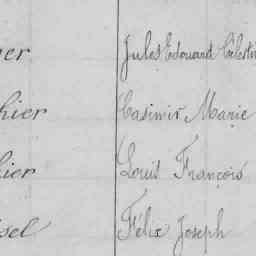 er Jules Edouard Célestin
hier Casimir Marie
hier Louis François
sel Félix Joseph